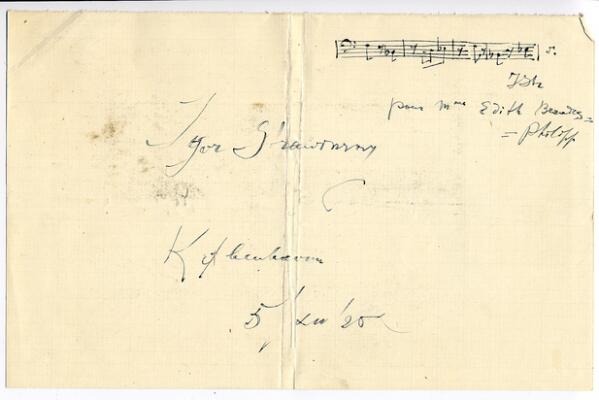 pour Mme Edith Brandes =
= Philipp
Igor Strawinsky
København